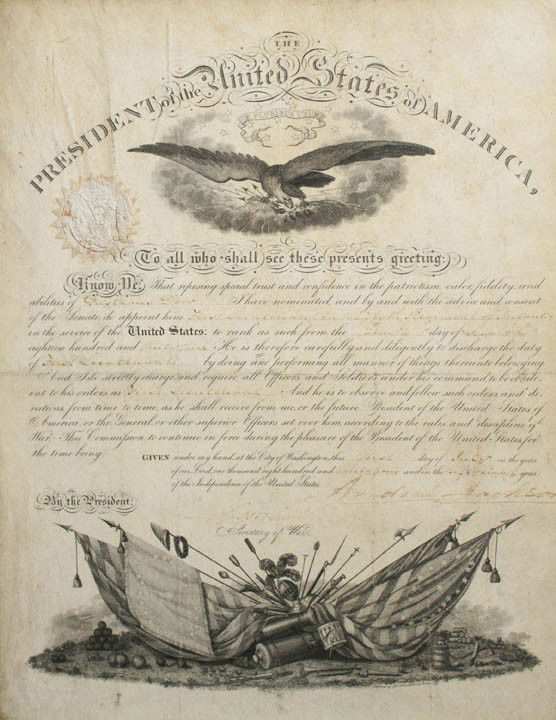 THE
PRESIDENT of the United States of AMERICA,
E PLURIBUS UNUM
To all who shall see these presents greeting:
Know Ye, That reposing special trust and confidence in the patriotism, valor, fidelity, and
abilities of I have nominated, and by and with the advice and consent
of the Senate, do appoint him First Lieutenant in the Regiment of Infantry
in the service of the United States: to rank as such from the day of
eighteen hundred and He is therefore carefully and diligently to discharge the duty
of First Lieutenant by doing and performing all manner of things thereunto belonging.
And I do strictly charge, and require all Officers and Soldiers under his command to be obedi-
ent to his orders as First Lieutenant And he is to observe and follow such orders, and di-
rections, from time to time, as he shall receive from me, or the future President of the United States of
America, or the General, or other superior Officers set over him, according to the rules and discipline of
War. This Commission to continue in force during the pleasure of the President of the United States, for
the time being.
GIVEN under my hand, at the City of Washington, this first day of July in the year
of our Lord, one thousand eight hundred and and in the year
of the Independence of the United States.
By the President,
Andrew Jackson
Secretary of War.